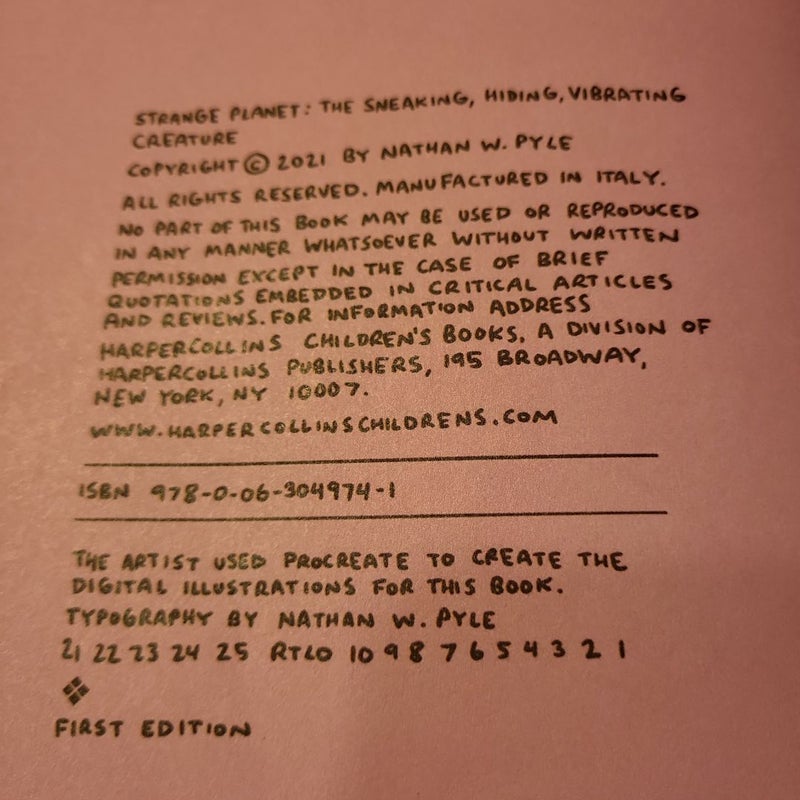 STRANGE PLANET: THE SNEAKING, HIDING, VIBRATING
CREATURE
COPYRIGHT © 2021 BY NATHAN W. PYLE
ALL RIGHTS RESERVED. MANUFACTURED IN ITALY.
NO PART OF THIS BOOK MAY BE USED OR REPRODUCED
IN ANY MANNER WHATSOEVER WITHOUT WRITTEN
PERMISSION EXCEPT IN THE CASE OF BRIEF
QUOTATIONS EMBEDDED IN CRITICAL ARTICLES
AND REVIEWS. FOR INFORMATION ADDRESS
HARPERCOLLINS CHILDREN'S BOOKS, A DIVISION OF
HARPERCOLLINS PUBLISHERS, 195 BROADWAY,
NEW YORK, NY 10007.
WWW.HARPERCOLLINSCHILDRENS.COM
ISBN 978-0-06-304974-1
THE ARTIST USED PROCREATE TO CREATE THE
DIGITAL ILLUSTRATIONS FOR THIS BOOK.
TYPOGRAPHY BY NATHAN W. PYLE
21 22 23 24 25 RTLO 10 9 8 7 6 5 4 3 2 1
❖
FIRST EDITION